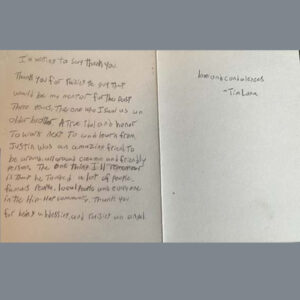 I'm writing to say thank you.
Thank you for raising the guy that
would be my mentor for the past
Three years, the one who I saw as an
older brother. A true idol and honor
To work next to and learn from.
Justin was an amazing friend to
be around, all around caring and friendly
person. The one thing I'll remember
is that he touched a lot of people.
Famous people, local people and everyone
in the Hip-Hop community. Thank you
for being a blessing, and raising an angel.
love and condolences